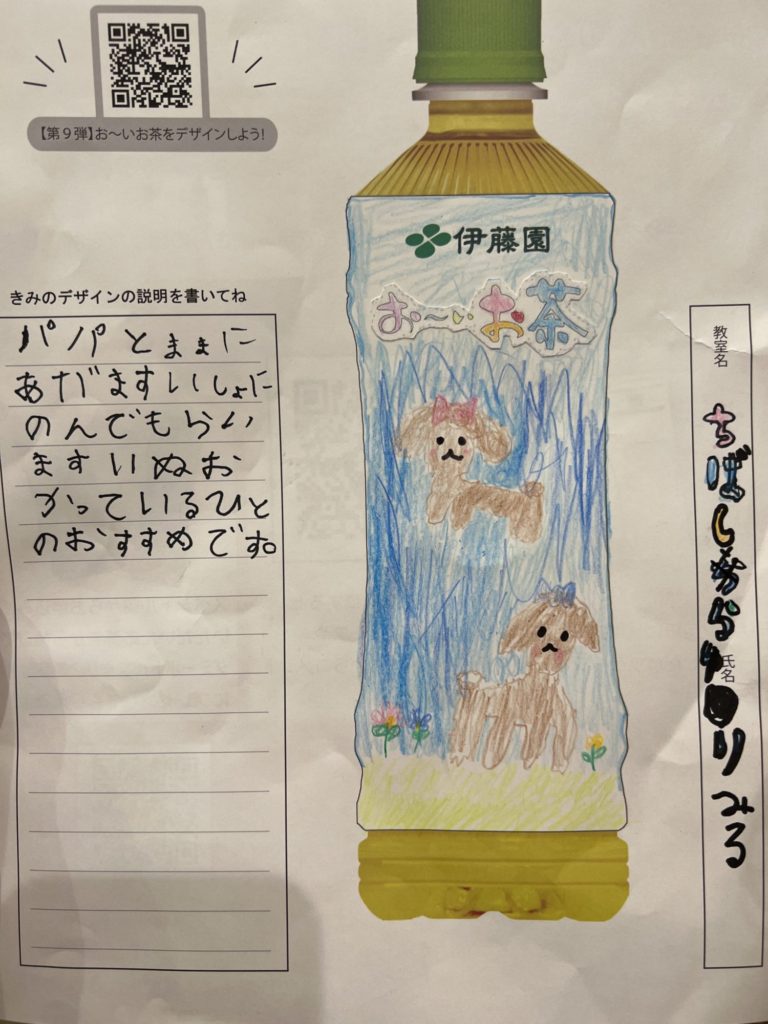 【第9弾】お〜いお茶をデザインしよう!
伊藤園
お〜いお茶
きみのデザインの説明を書いてね
パパとままに
あがますいしょに
のんでもらい
ますいぬお
かっているひと
のおすすめです。
教室名
ちばし
氏名
みる